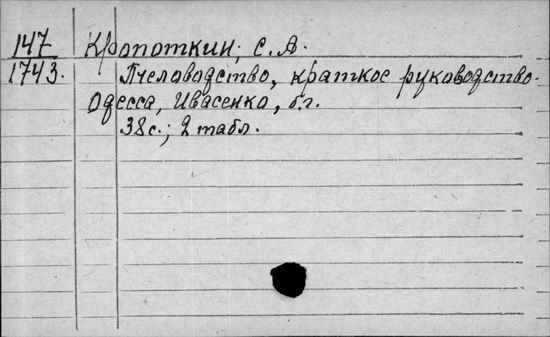 147
1743.
Кропоткин, С.А.
Пчеловодство, краткое руководство.
Одесса, Ивасенко, б.г.
38с.; 2 табл.